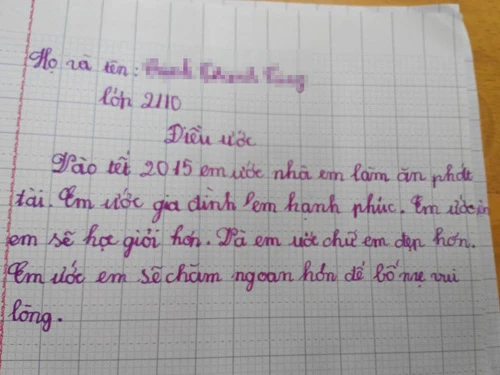 Họ và tên:
lớp 2/10
Điều ước
Vào tết 2015 em ước nhà em làm ăn phát
tài. Em ước gia đình em hạnh phúc. Em ước
em sẽ học giỏi hơn. Và em ước chữ em đẹp hơn.
Em ước em sẽ chăm ngoan hơn để bố mẹ vui
lòng.